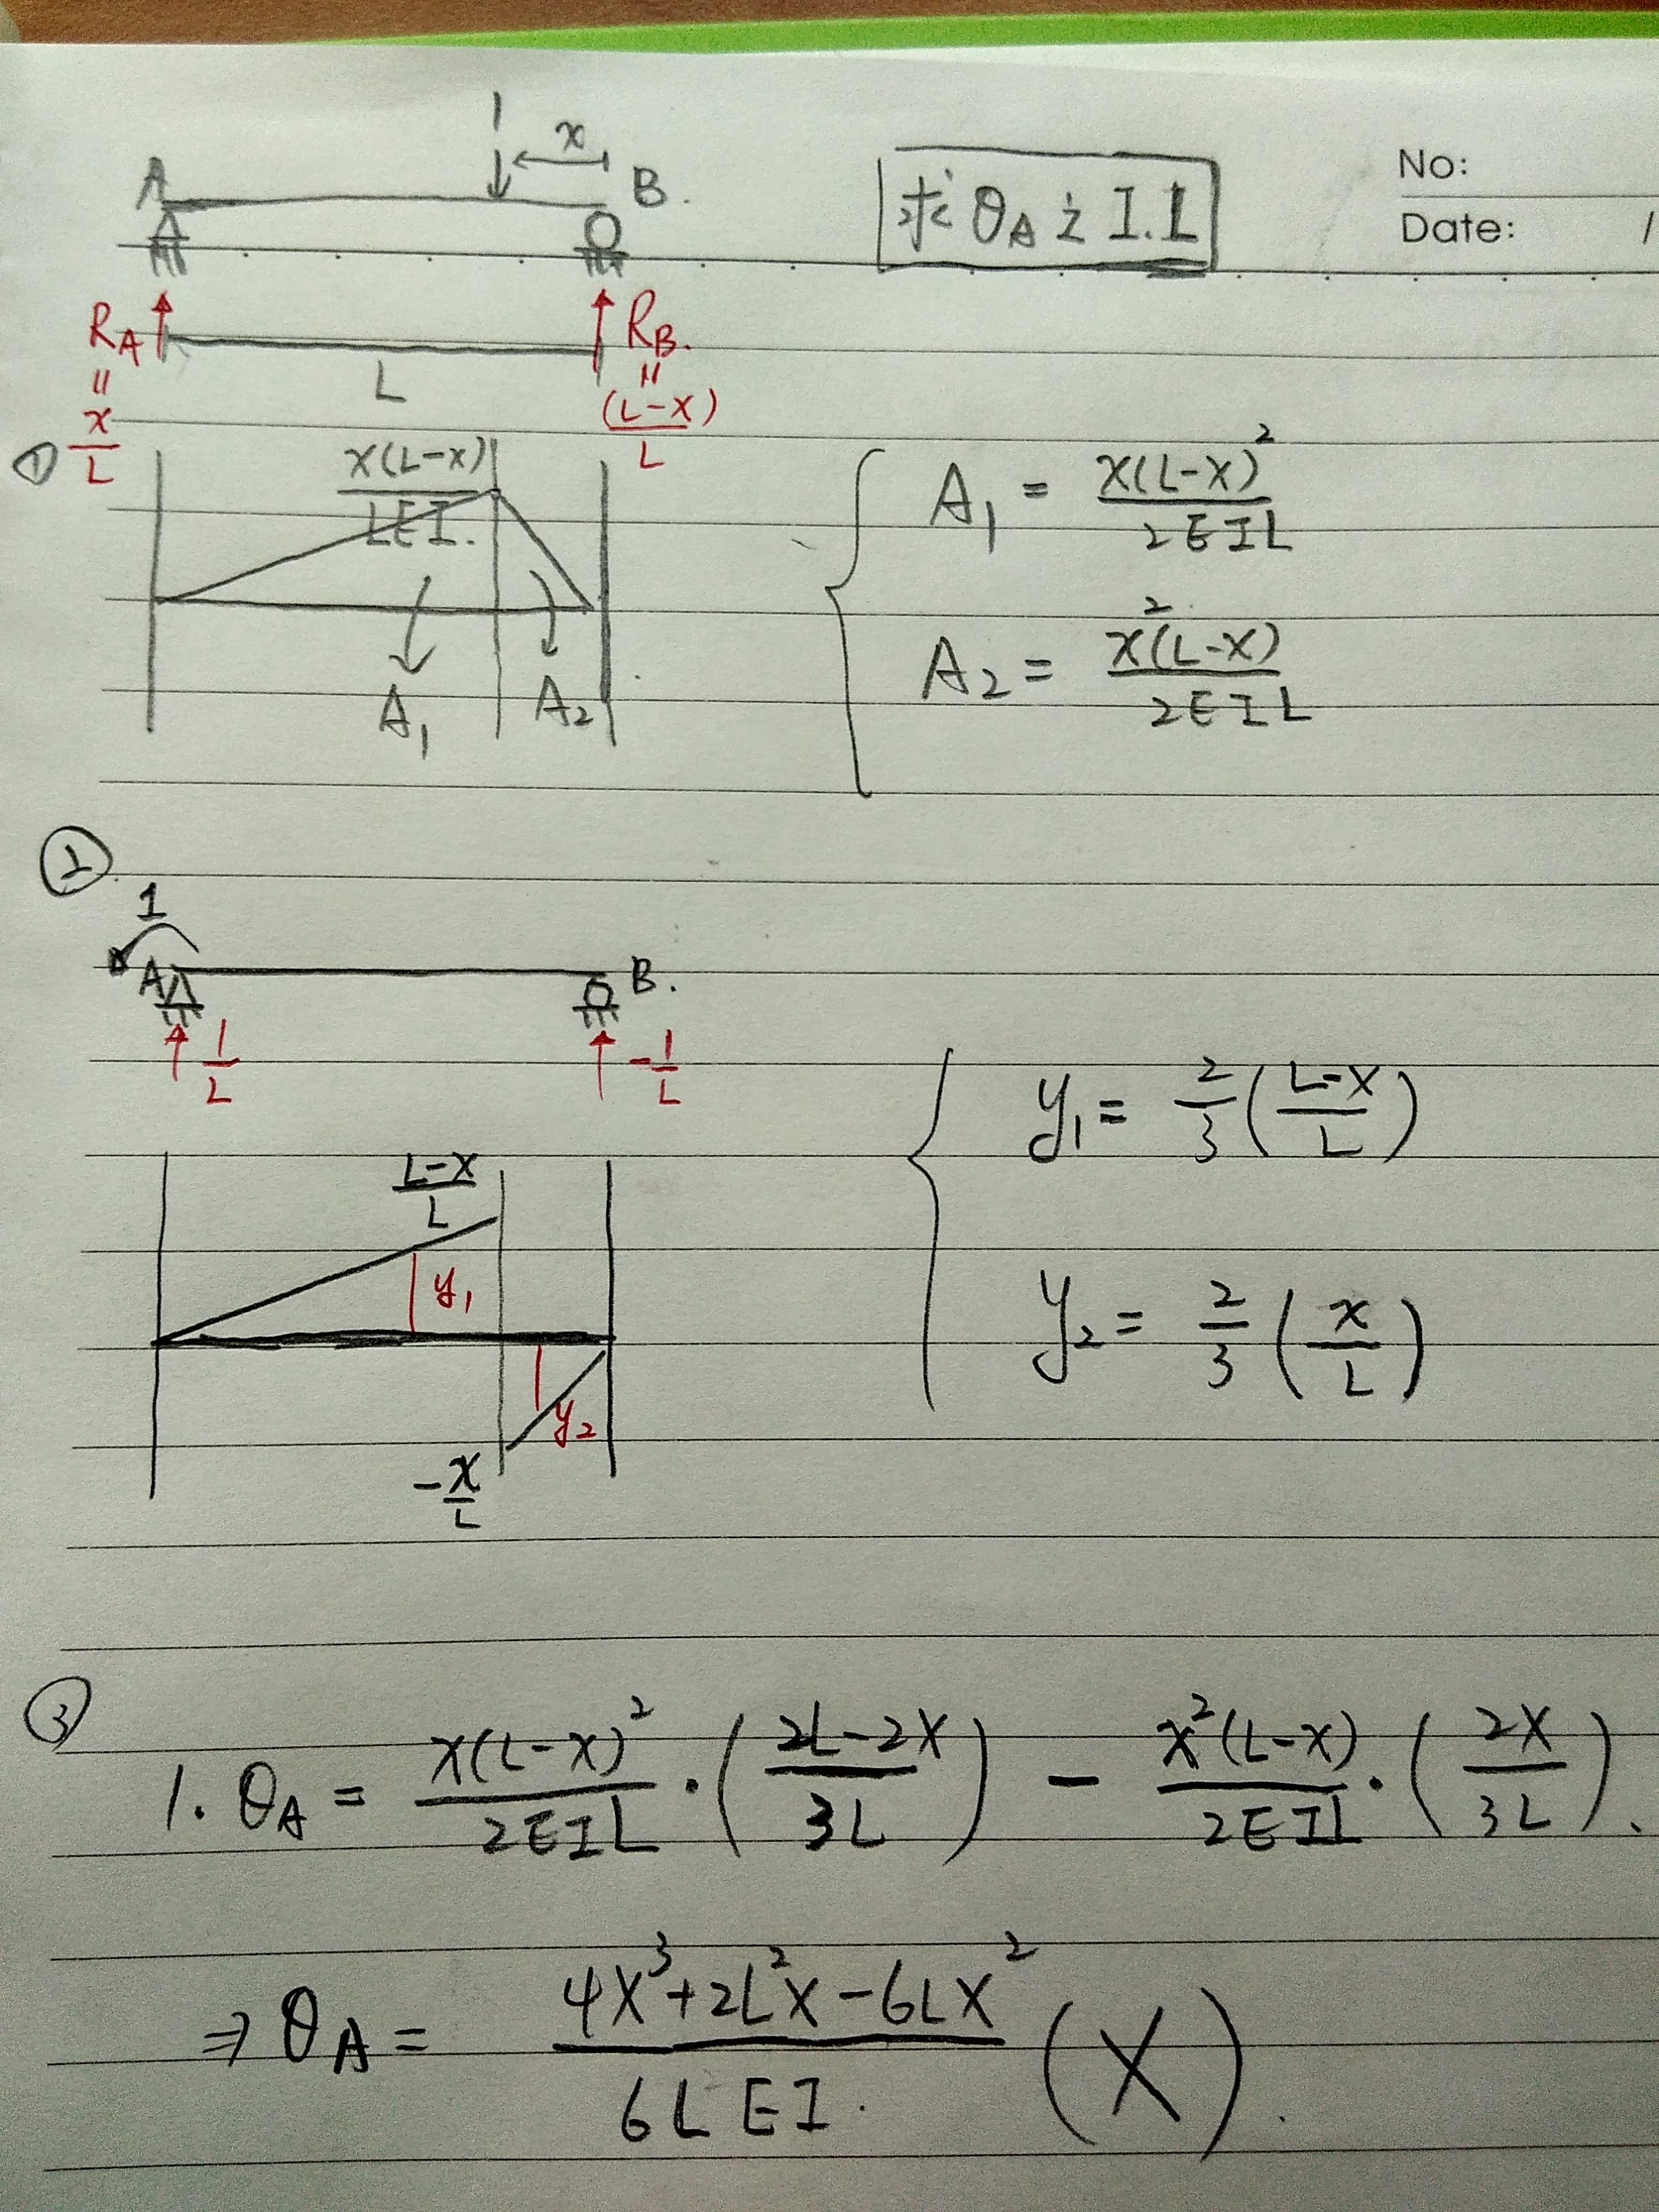 No:
Date: /
1
x
A
B.
求 θA 之 I.L
RA = x/L
RB. = (L-x)/L
L
①
x(L-x)/LEI.
A1
A2
A1 = x(L-x)²/2EIL
A2 = x²(L-x)/2EIL
②
1
A
B.
1/L
-1/L
L-x/L
y1
y2
-x/L
y1 = 2/3 (L-x/L)
y2 = 2/3 (x/L)
③
1. θA = x(L-x)²/2EIL · (2L-2x/3L) - x²(L-x)/2EIL · (2x/3L).
⇒ θA = 4x³+2L²x-6Lx²/6LEI. (X).